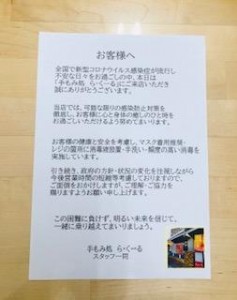 お客様へ
全国で新型コロナウイルス感染症が流行し
不安な日々をお過ごしの中、本日は
「手もみ処 ら・くーる」にご来店いただき
誠にありがとうございます。
当店では、可能な限りの感染防止対策を
徹底し、お客様に心と身体の癒しのひと時を
過ごしていただけるよう努めてまいります。
お客様の健康と安全を考慮し、マスク着用施術・
レジの箇所に消毒液設置・手洗い・頻度の高い消毒を
実施しています。
引き続き、政府の方針・状況の変化を注視しながら
今後営業時間の短縮等考慮しておりますので、
ご面倒をおかけしますが、ご理解・ご協力を
賜りますようお願い申し上げます。
この困難に負けず、明るい未来を信じて、
一緒に乗り越えてまいりましょう。
手もみ処 ら・くーる
スタッフ一同